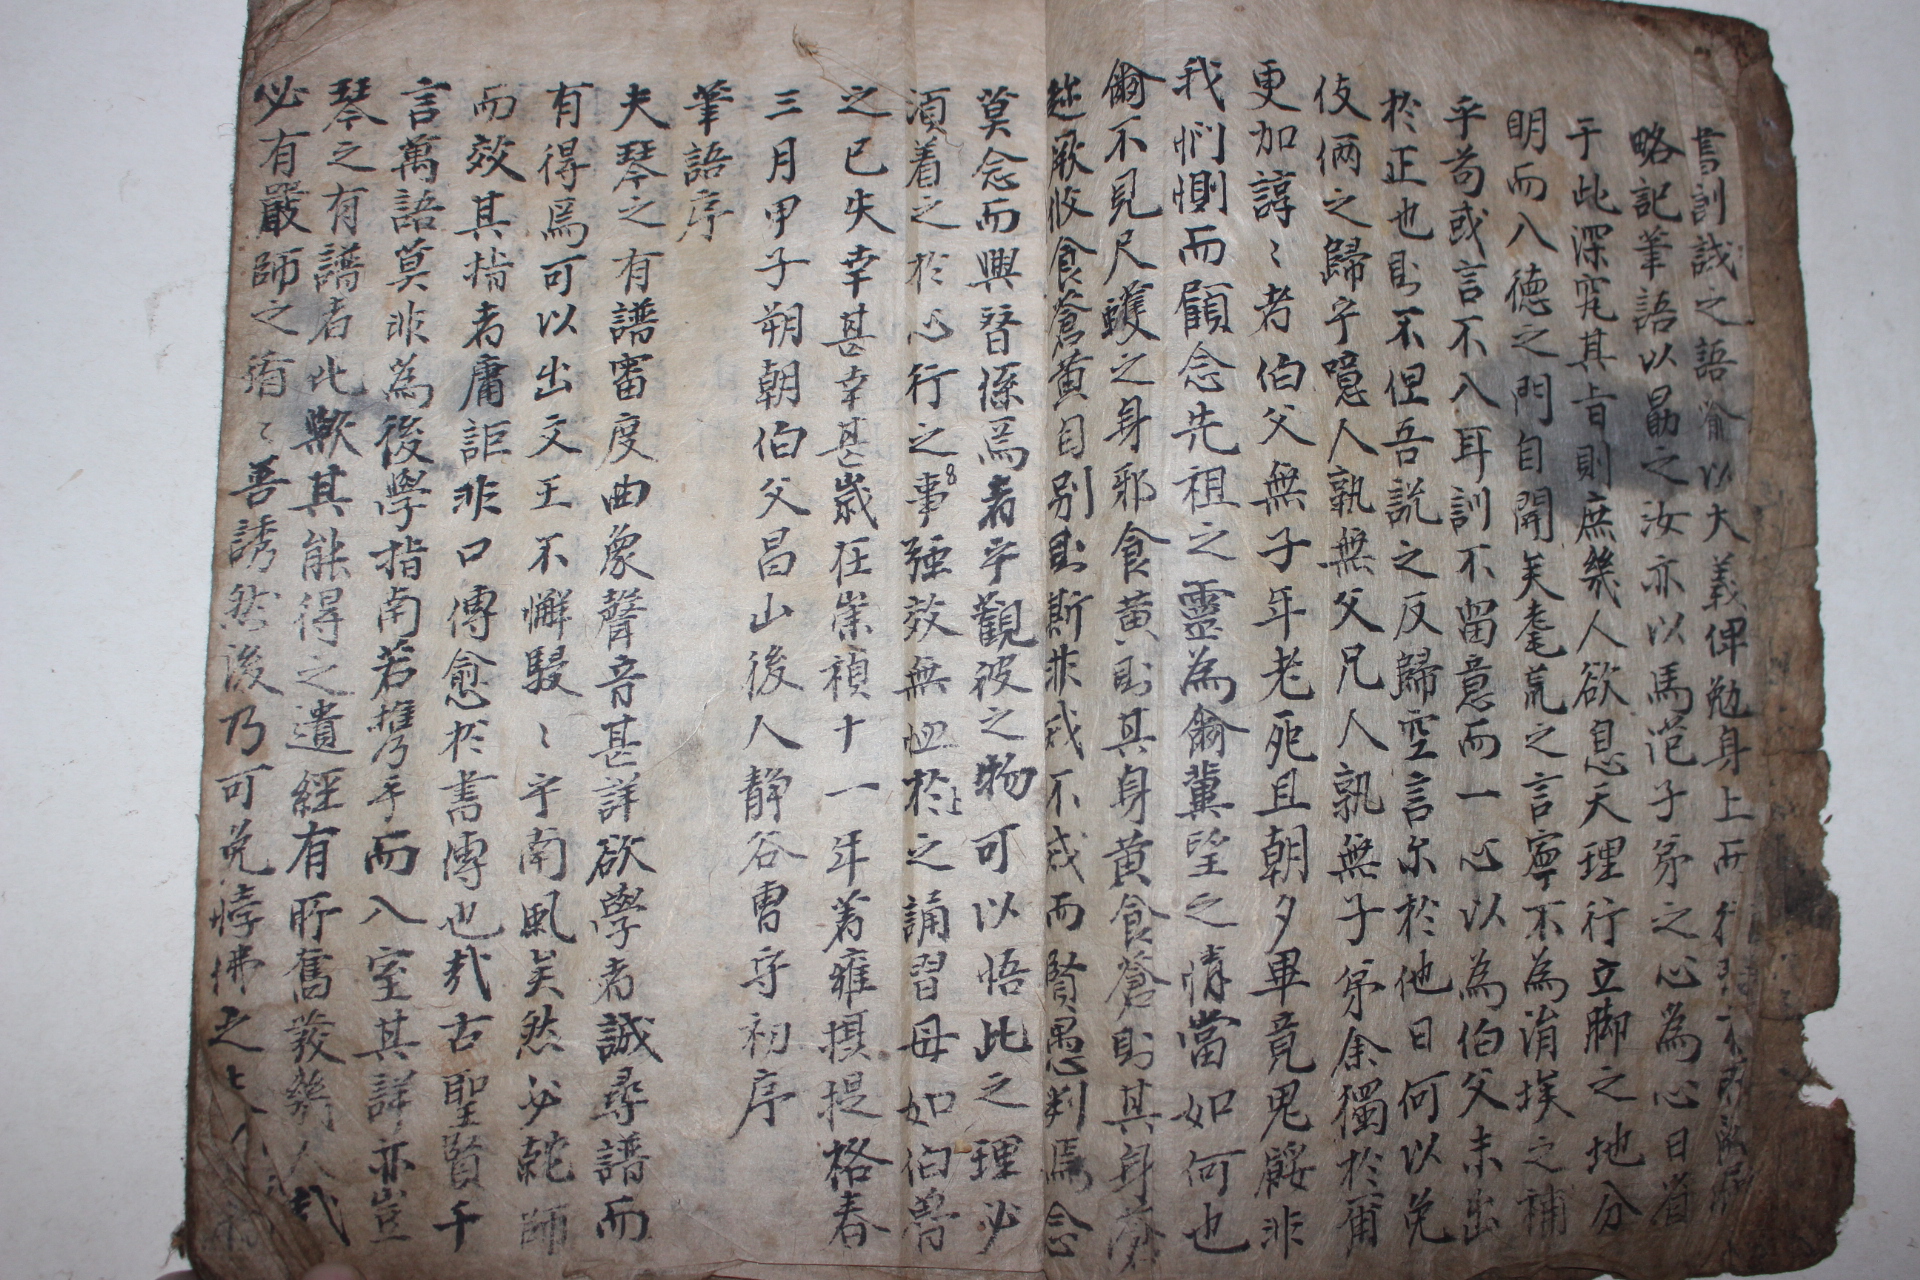 書訓誡之語喻以大義俾勉身上而行
略記筆語以勗之汝亦以馬范子弟之心為心日省
于此深究其旨則庶幾人欲息天理行立脚之地分
明而入德之門自開矣耄荒之言寧不為涓埃之補
乎苟或言不入耳訓不留意而一心以為伯父未出
於正也則不但吾說之反歸空言尔於他日何以免
伎倆之歸乎噫人孰無父兄人孰無子弟余獨於爾
更加諄〻者伯父無子年老死且朝夕畢竟鬼餒非
我們惻而顧念先祖之靈為爾冀望之情當如何也
爾不見尺蠖之身邪食黃則其身黃食蒼則其身蒼
趂厥攸食蒼黃自別則斯非戒不戒而賢愚判焉念
莫念而興替係焉者乎觀彼之物可以悟此之理必
須着之於心行之事强效無𢘆於之誦習毋如伯曾
之已失幸甚幸甚歲在崇禎十一年著雍攝提格春
三月甲子朔朝伯父昌山後人靜谷曺守初序
筆語序
夫琴之有譜審度曲象聲音甚詳欲學者誠尋譜而
有得焉可以出文王不懈駸〻乎南風矣然必就師
而效其指者庸詎非口傳愈於書傳也哉古聖賢千
言萬語莫非為後學指南若攜手而入室其詳亦豈
琴之有譜者此歟其能得之遺經有所奮發幾人哉
必有嚴師之循〻善誘然後乃可免悖怫之